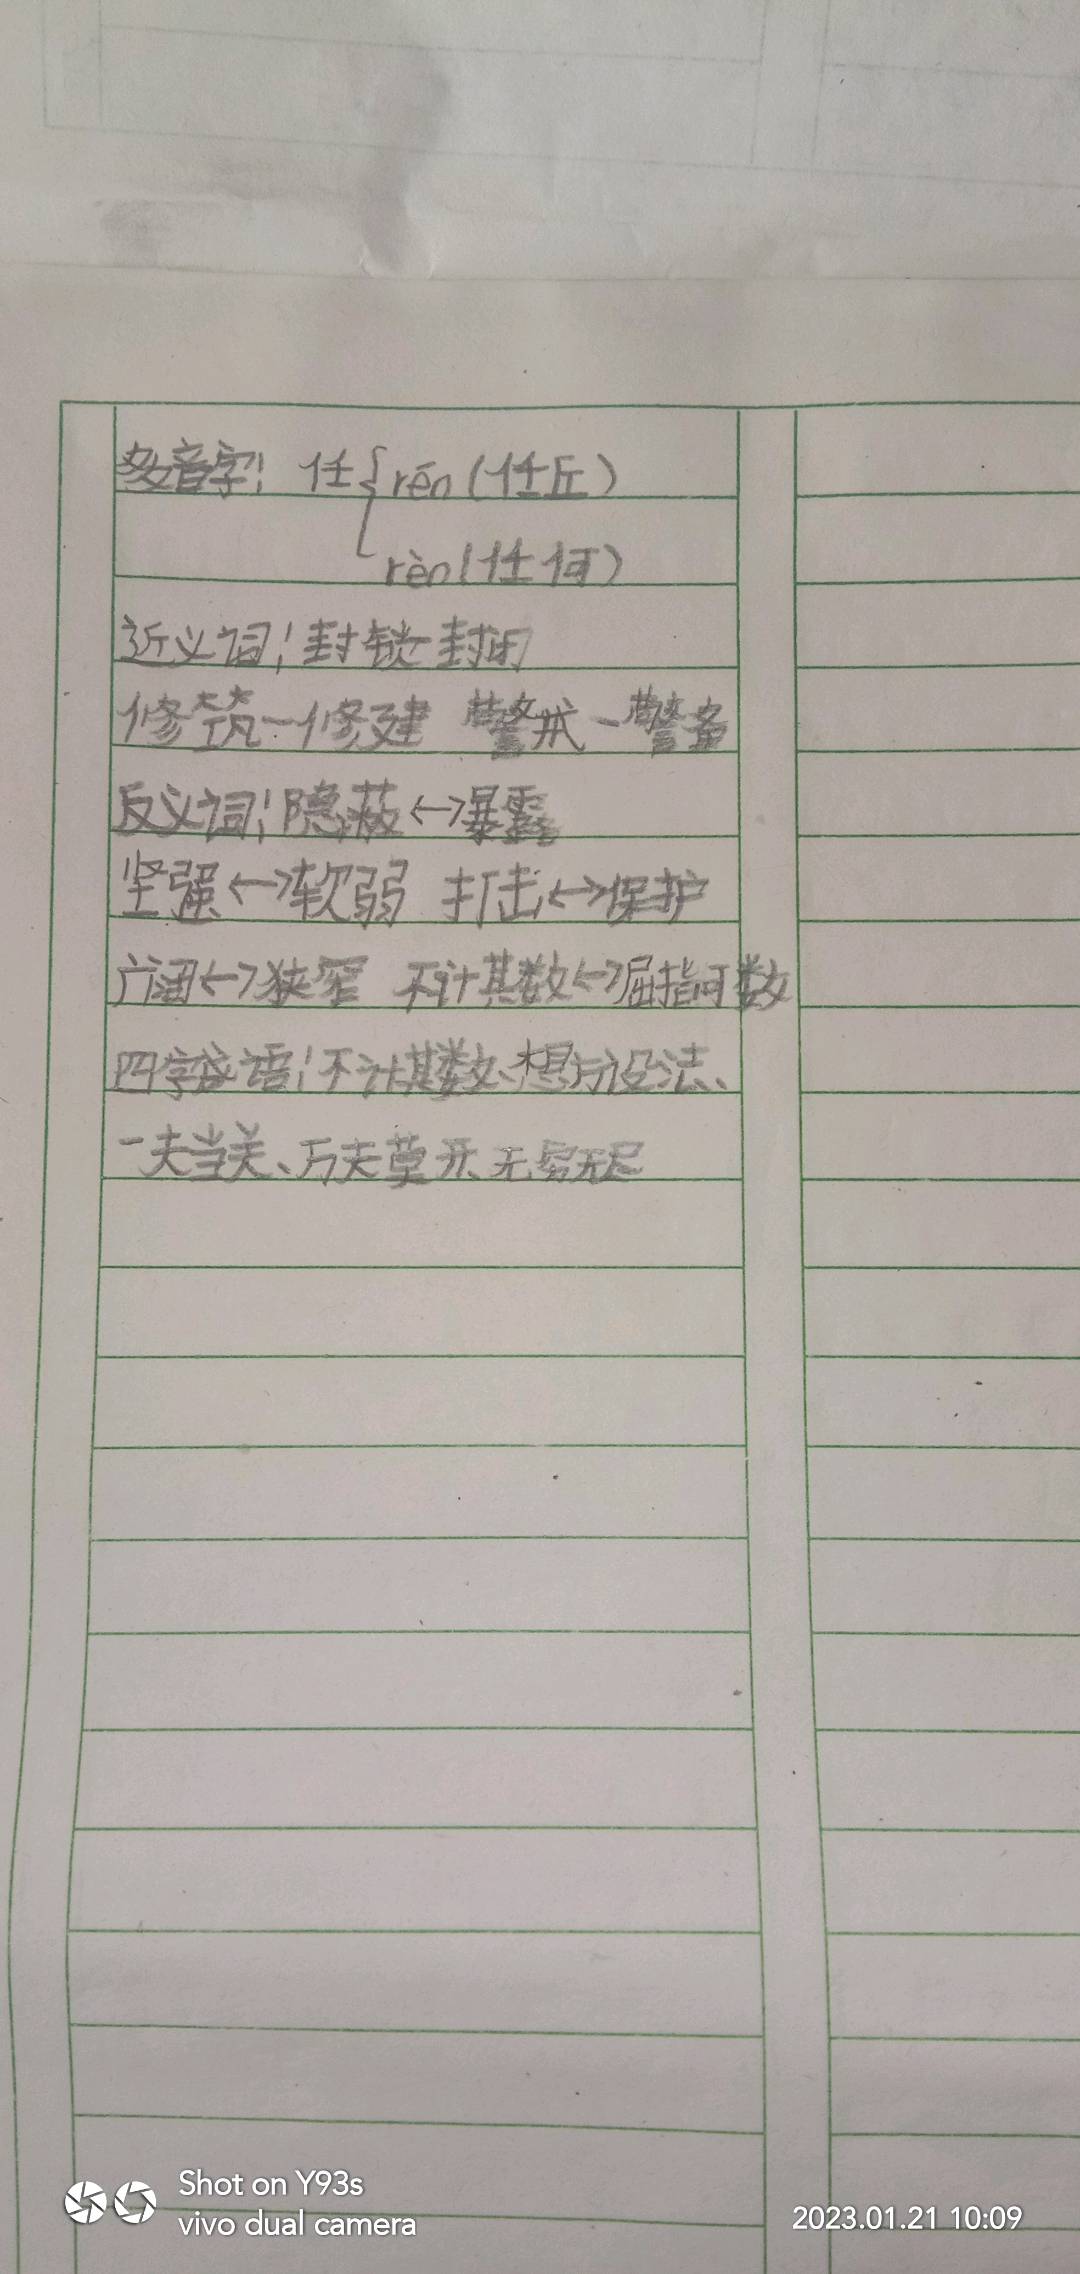 多音字: 任{rén(任丘)
rèn(任何)
近义词:封锁-封闭
修筑-修建 警戒-警备
反义词:隐蔽↔暴露
坚强↔软弱 打击↔保护
广阔↔狭窄 不计其数↔屈指可数
四字成语:不计其数、想方设法、
一夫当关、万夫莫开、无穷无尽
Shot on Y93s
vivo dual camera
2023.01.21 10:09